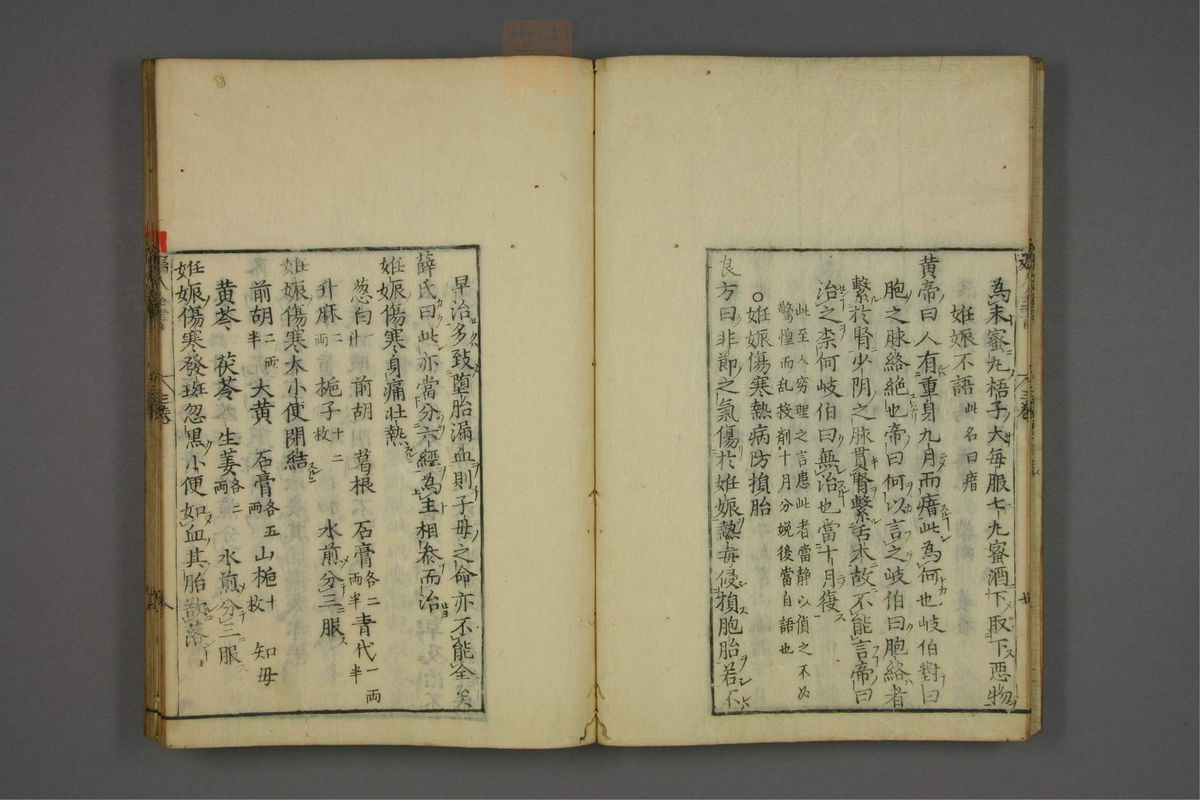 為末蜜丸梧子大每服七丸蜜酒下取下惡物
妊娠不語 此名曰瘖
黃帝曰人有重身九月而瘖此為何也岐伯對曰
胞之脉絡絶也帝曰何以言之岐伯曰胞絡者
繫於腎少阴之脉貫腎繫舌本故不能言帝曰
治之柰何岐伯曰無治也當十月復
此至人穷理之言患此者當静以俟之不必
驚惶而乱投剤十月分娩後當自語也
○妊娠傷寒熱病防損胎
良方曰非節之氣傷於妊娠熱毒侵損胞胎若不
早治多致堕胎漏血則子母之命亦不能全矣
薛氏曰此亦當分六經為主相叅而治
妊娠傷寒身痛壮熱
葱白一升 前胡 葛根 石膏各二両半 青代一両半
升麻二両 梔子十二枚 水煎分三服
妊娠傷寒大小便閉結
前胡二両半 大黄 石膏各五両 山梔十枚 知母
黄芩 茯苓 生姜各二両 水煎分三服
妊娠傷寒發斑忽黒小便如血其胎欲落
三巻